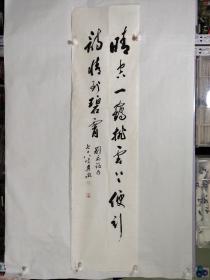 晴空一鶴排雲上便引
詩情到碧霄
劉禹錫句